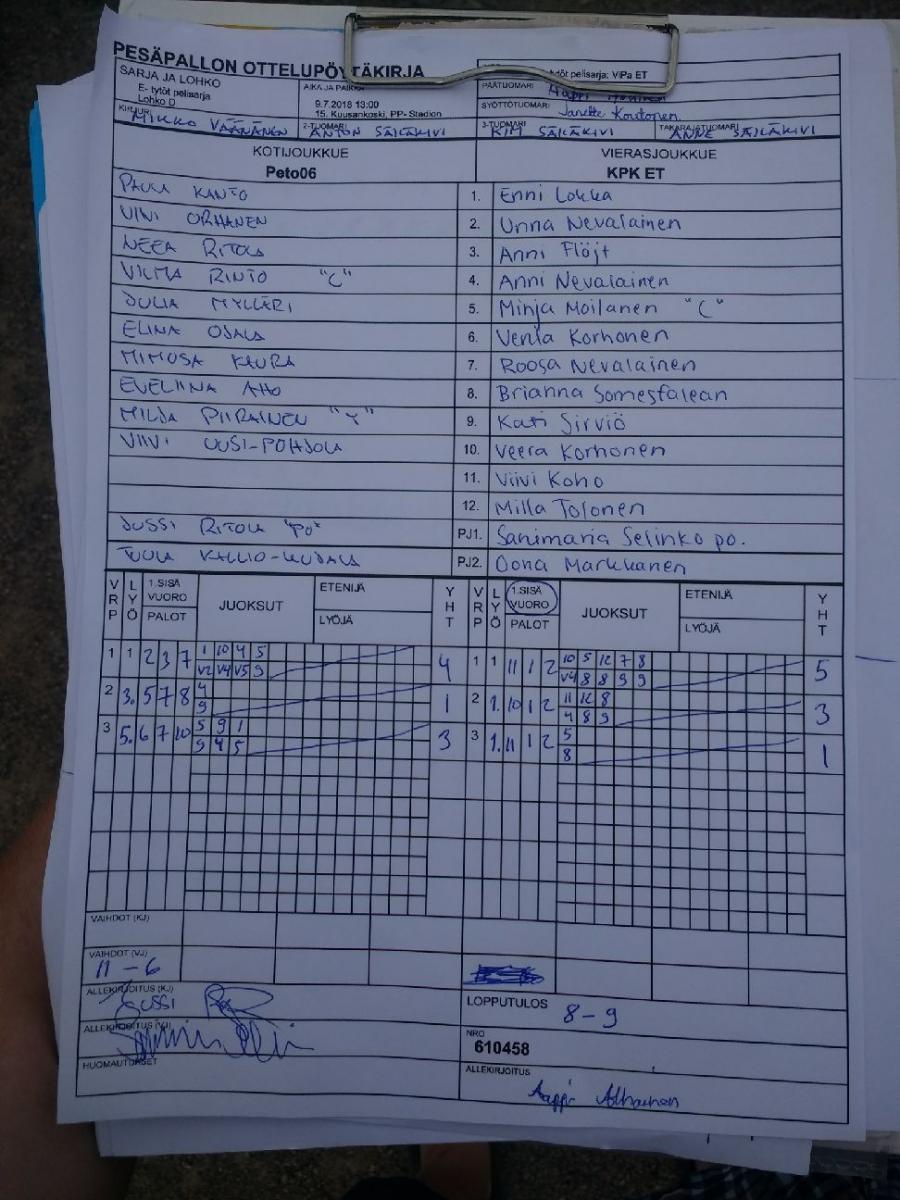 PESÄPALLON OTTELUPÖYTÄKIRJA
tytöt pelisarja: ViPa ET
SARJA JA LOHKO
E- tytöt pelisarja
Lohko D
AIKA JA PAIKKA
9.7.2018 13:00
15. Kuusankoski, PP- Stadion
PÄÄTUOMARI
Aappi
SYÖTTÖTUOMARI
Janette Koutonen
KIRJURI MIKKO VÄÄNÄNEN
2-TUOMARI ANTON SÄILÄKIVI
3-TUOMARI KIM SÄILÄKIVI
TAKARAJATUOMARI ANNE SÄILÄKIVI
KOTIJOUKKUE VIERASJOUKKUE
Peto06 KPK ET
PAULA KANTO 1. Enni Lokka
VIIVI ORHANEN 2. Unna Nevalainen
NEEA RITOLA 3. Anni Flöjt
VILMA RINTO "C" 4. Anni Nevalainen
JULIA MYLLÄRI 5. Minja Moilanen "C"
ELINA OJALA 6. Venla Korhonen
MIMOSA KAURA 7. Roosa Nevalainen
EVELIINA AHO 8. Brianna Somesfalean
MILJA PIIRAINEN "Y" 9. Kati Sirviö
VIIVI UUSI-POHJOLA 10. Veera Korhonen
11. Viivi Koho
12. Milla Tolonen
JUSSI RITOLA "PO" PJ1. Sanimaria Selinko po.
TUULA KALLIO- PJ2. Oona Markkanen
VRP LYÖ 1.SISÄ VUORO PALOT JUOKSUT ETENIJÄ LYÖJÄ YHT VRP LYÖ 1.SISÄ VUORO PALOT JUOKSUT ETENIJÄ LYÖJÄ YHT
1 1 2 3 7 1 10 4 5 4 1 1 11 1 2 10 5 12 7 8 5
V2 V4 V5 9 V4 8 8 9 9
2 3. 5 7 8 4 1 2 1. 10 1 2 11 12 8 3
9 4 8 9
3 5. 6 7 10 5 9 1 3 3 1. 11 1 2 5 1
9 4 5 8
VAIHDOT (KJ)
VAIHDOT (VJ)
11 - 6
ALLEKIRJOITUS (KJ)
Jussi
LOPPUTULOS
8 - 9
ALLEKIRJOITUS (VJ)
NRO
610458
HUOMAUTUKSET
ALLEKIRJOITUS
Aappi